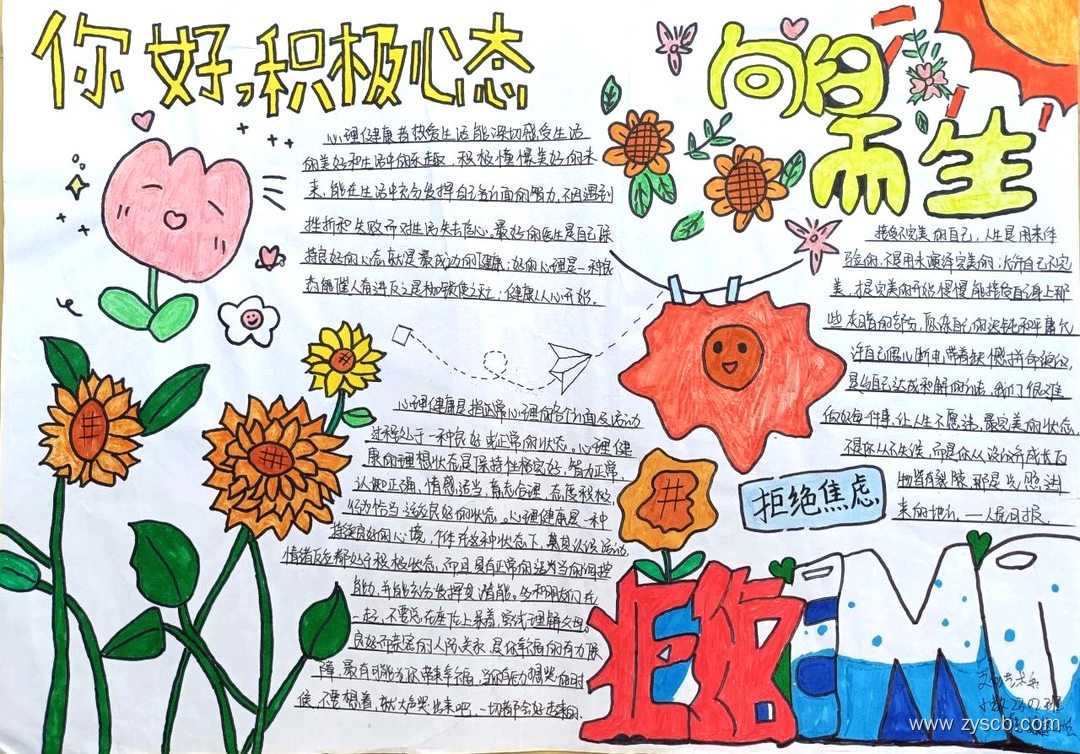 你好,积极心态
向日
而生
心理健康者热爱生活能深切感受生活
的美好和生活中的乐趣，积极憧憬美好的未
来，能在生活中充分发挥自己各方面的智力，不因遇到
挫折和失败而对生活失去信心。最好的医生是自己保
持良好的心态，就是最成功的健康；好的心理是一种良
健康从心开始。
接受不完美的自己，人生是用来体
验的，不是用来演绎完美的；允许自己不完
能接受自己身上那
些灰暗的部分，原谅自己的迟钝和平庸允
许自己偶尔断电，带着缺憾拼命绽放，
是与自己达成和解的办法。我们很难
做好每件事，让人生不愿违，最完美的状态，
不是你从不失误，而是你从没放弃成长万
物皆有裂隙，那是光照进
来的地方。——人民日报
心理健康是指正常心理的各个方面及活动
过程处于一种良好或正常的状态。心理健
康的理想状态是保持性格完好，智力正常
认知正确，情感适当，意志合理，态度积极，
行为恰当，适应良好的状态。心理健康是一种
持续良好的心境，个体在这种状态下，
情绪反应都处于积极状态，而且具有正常的适当的调控
能力，并能充分发挥其潜能。多和朋友们在
一起，不要总在座位上呆着，尝试理解父母。
良好而亲密的人际关系，是你幸福的有力保
障，最有可能为你带来幸福，当你有
候，不要想着，就大声哭出来吧，一切都会好起来的。
拒绝焦虑
拒绝
EMO
www.zyscb.com